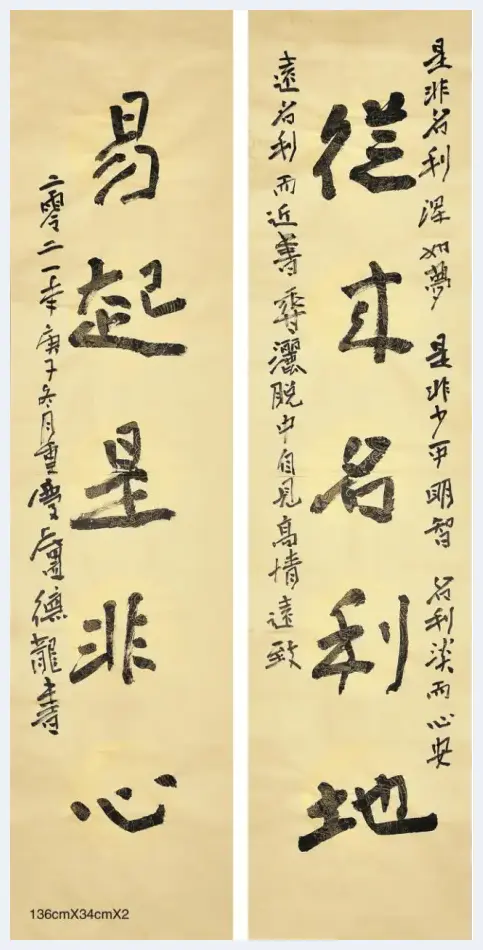 是非名利渾如夢 是非少 明智 名利淡而心安
從来名利地
遠名利而近善 灑脫中自見高情遠致
易起是非心
二零二一年庚子冬月重慶盧德龍書
136cmX34cmX2